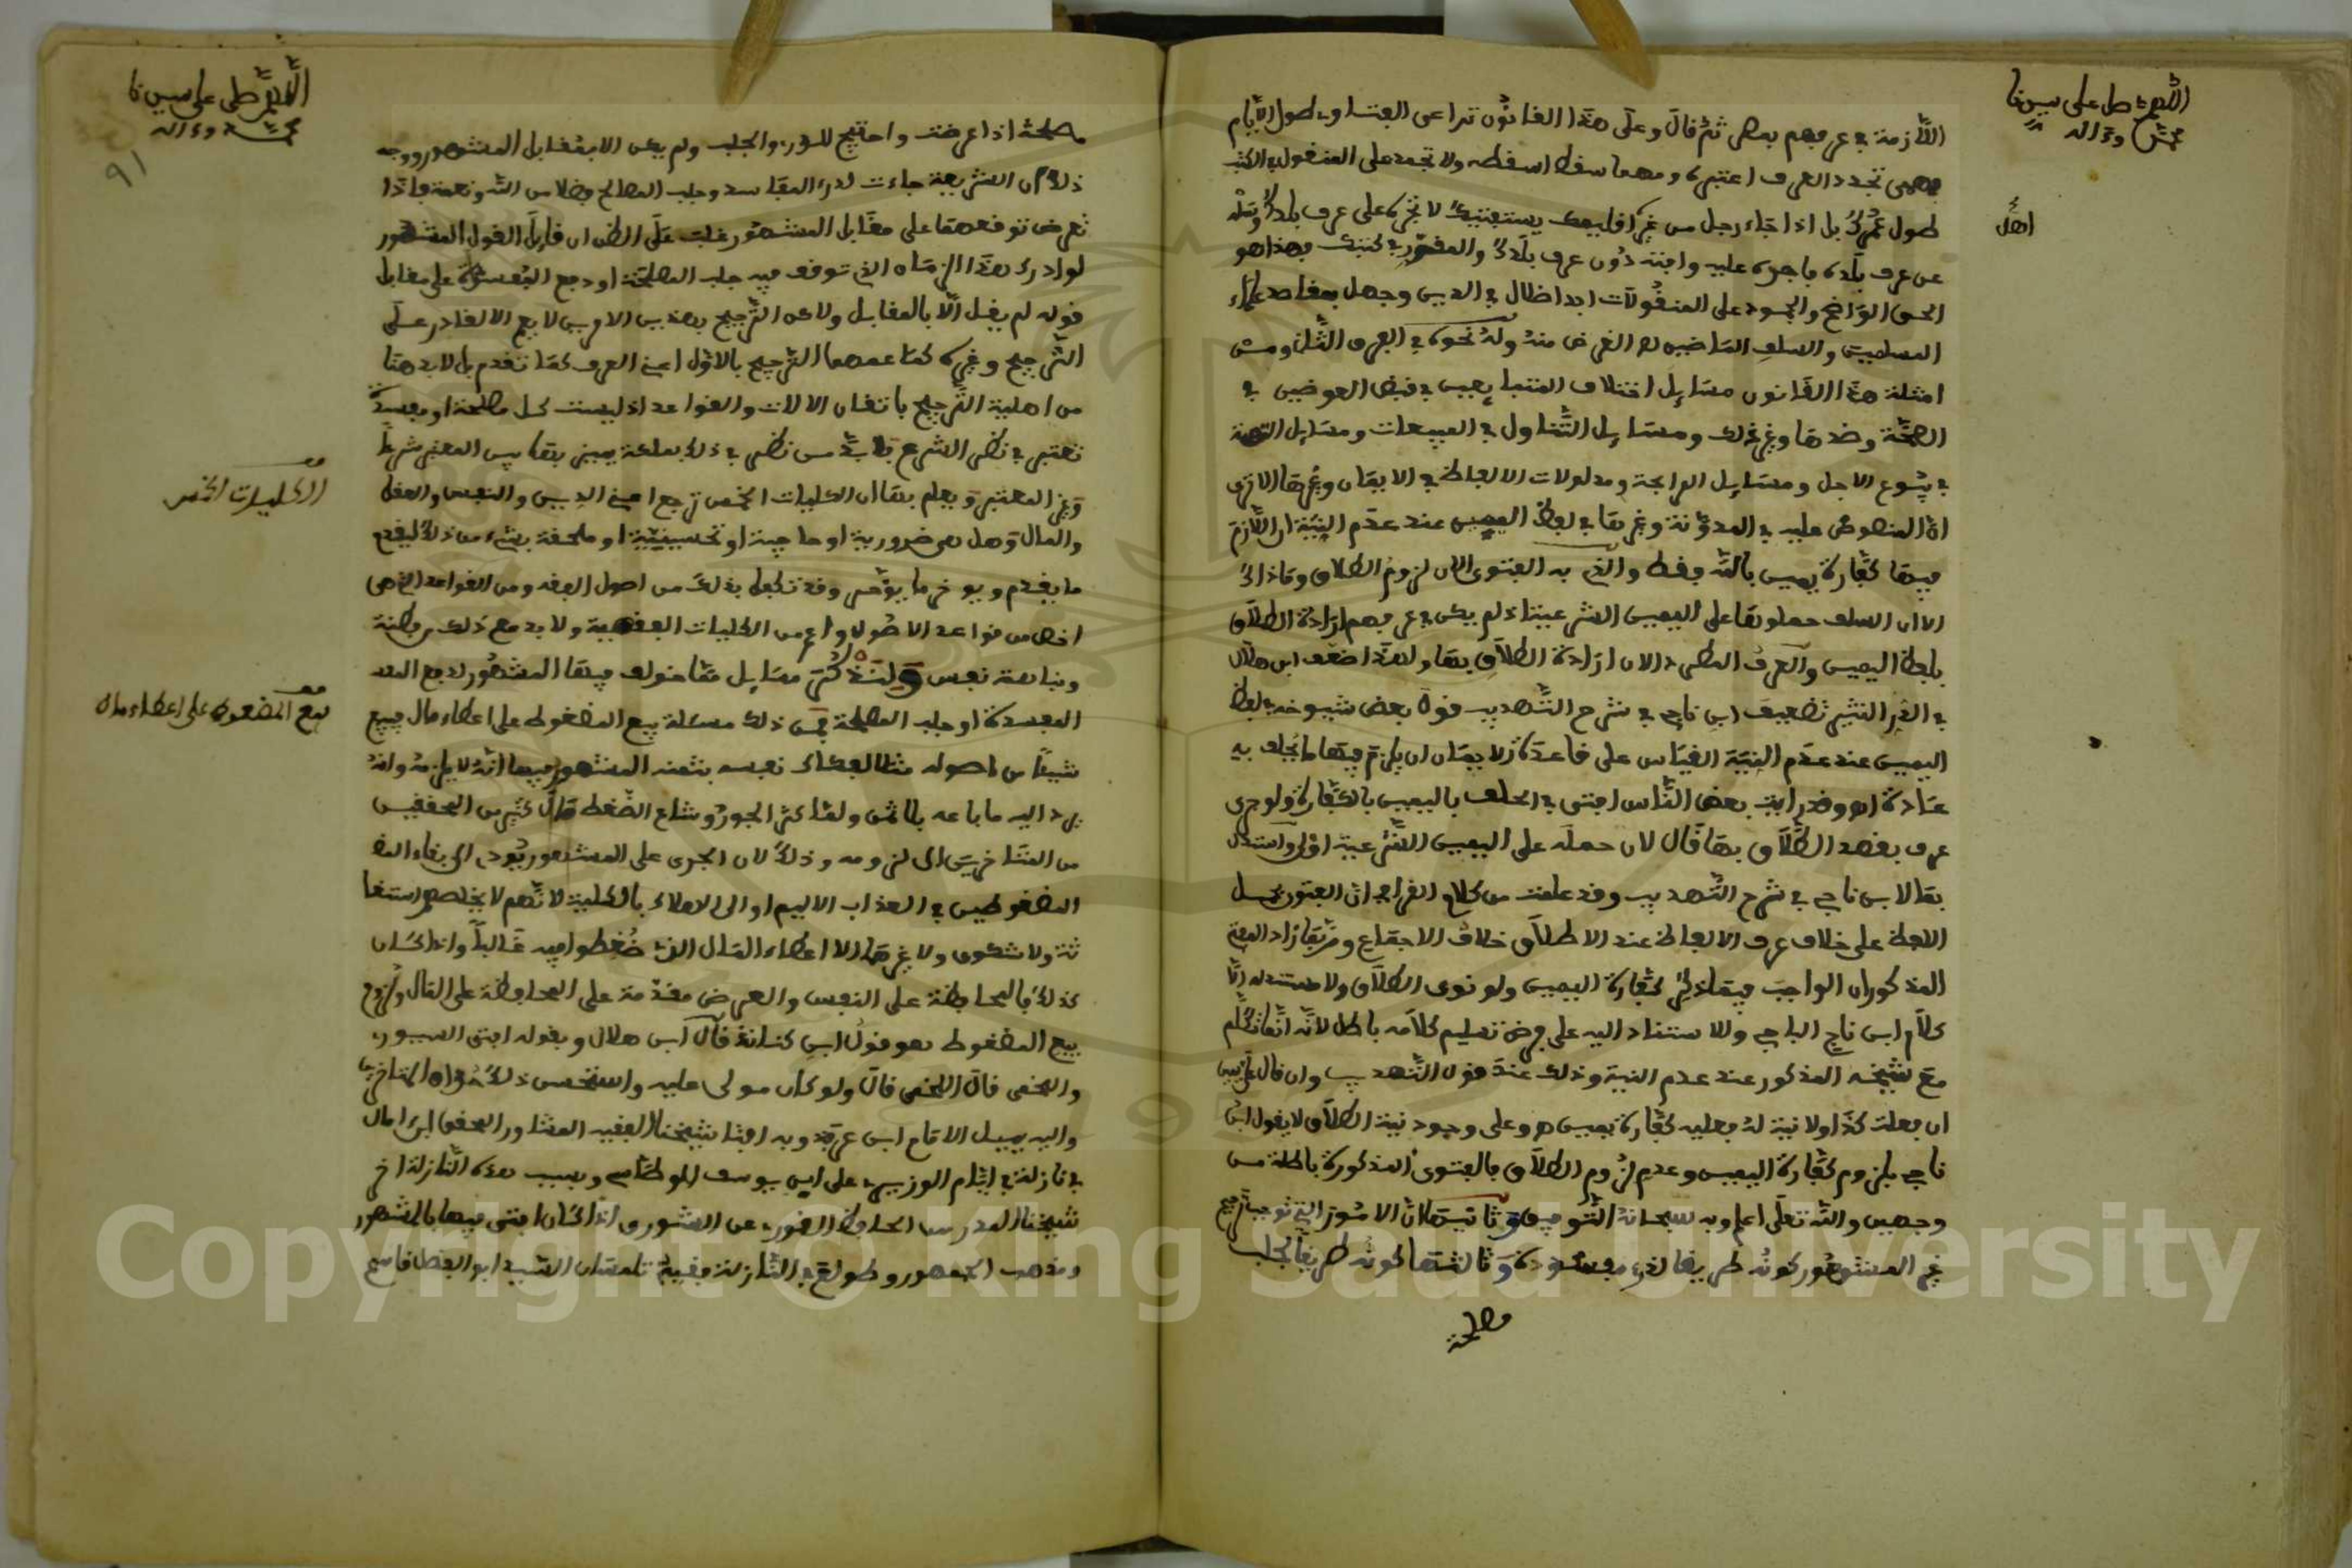 اللهم صل على سيدنا
محمد وءاله
اللازمة في عرفهم بعض ثم قال وعلى هذا القانون تراعى الفتاوي طول الأيام
فمهمى تجدد العرف اعتبره ومهما سقط اسقطه ولا تجمد على المنقول في الكتب
طول عمرك بل اذا جاء رجل من غير اقليمك يستفتيك لا تجره على عرف بلدك وسله
اهل
عن عرف بلده فاجره عليه وافته دون عرف بلدك والمقرر في كتبك فهذا هو
الحق الواضح والجمود على المنقولات ابدا ضلال في الدين وجهل بمقاصد علماء
المسلمين والسلف الماضين الغرض منه وله نحوه في الفرق الثمانى ومن
امثلة هذا القانون مسايل اختلاف الفتيا في قبض العوضين في
الصحة وضدها وغير ذلك ومسايل التناول في البيعات ومسايل التهمة
في بيوع الاجل ومسايل المرابحة ومدلولات الالفاظ في الايمان وغيرها الا ترى
ان المنصوص عليه في المدونة وغيرها في لفظ اليمين عند عدم النية ان اللازم
فيها كفارة يمين بالله فقط والذي به الفتوى الان لزوم الطلاق وما ذاك
الا ان السلف حملوها على اليمين الشرعية اذ لم يكن في عرفهم ارادة الطلاق
بلفظ اليمين والعرف المطرد الان ارادة الطلاق بها ولهذا ضعف ابن هلال
في الدر النثير تضعيف ابن ناجي في شرح التهذيب قول بعض شيوخه في لفظ
اليمين عند عدم النية القياس على قاعدة الايمان ان يلزم فيها ما يحلف به
عادة اه وقد رايت بعض الناس افتى في الحلف باليمين بالكفارة ولو جرى
عرف بقصد الطلاق بها قال لان حمله على اليمين الشرعية اولى واستدل
بقالابن ناجي في شرح التهذيب وقد علمت من كلام القرافي ان الفتوى بحمل
اللفظ على خلاف عرف الالفاظ عند الاطلاق خلاف الاجماع وربما زاد المفتي
المذكور ان الواجب فيما ذكر كفارة اليمين ولو نوى الطلاق ولا مستند له الا
كلام ابن ناجي والاستناد اليه على فرض تسليم كلامه باطل لانه انما تكلم
مع شيخه المذكور عند عدم النية وذلك عند قول التهذيب وان قال علي يمين
ان فعلت كذا ولا نية له فعليه كفارة يمين وعلى وجود نية الطلاق لا يقول ابن
ناجي بلزوم كفارة اليمين وعدم لزوم الطلاق فالفتوى المذكورة باطلة من
وجهين والله تعلى اعلم وبه سبحانه التوفيق وثانيها ان الامور التي توجب ترجيح
غير المشهور كونه طريقا لدرء مفسدة وثالثها كونه طريقا لجلب
مصلحة
اللهم صل على سيدنا
محمد وءاله
٩١
مصلحة اذا عرضت واحتيج للدرء والجلب ولم يكن الا بمقابل المشهور ووجه
ذلك ان الشريعة جاءت لدرء المفاسد وجلب المصالح فضلا من الله ونعمة فاذا
تعرض توقفهما على مقابل المشهور غلب على الظن ان قايل القول المشهور
لو ادرك هذا الزمان الذي توقف فيه جلب المصلحة او دفع المفسدة على مقابل
قوله لم يقل الا بالمقابل ولاكن الترجيح بهذين الامرين لا يقع الا لقادر على
الترجيح وغيره كما عمهما الترجيح بالاول اعني العرف كما تقدم بل لا بد هنا
من اهلية الترجيح باتقان الالات والقواعد اذ ليست كل مصلحة او مفسدة
تعتبر في نظر الشرع فلا بد من نظر في ذلك بملكة يميز بها بين المعتبر شرعا
وغير المعتبر ويعلم بها ان الكليات الخمس ترجع اعني الدين والنفس والعقل
الكليات الخمس
والمال وهل هي ضرورية او حاجية او تحسينية او ملحقة بشيء من ذلك ليقدم
ما يقدم ويوخر ما يوخر وقد تكفل بذلك فن اصول الفقه ومن القواعد التي هي
اخص من قواعد الاصول واعم من الكليات الفقهية ولا بد مع ذلك من فطنة
ونباهة نفس ولنذكر مسايل مما خولف فيها المشهور لدفع
المفسدة او جلب المصلحة فمن ذلك مسئلة بيع المضغوط على اعطاء مال فيبيع
بيع المضغوط على اعطاء مال
شيئا من اصوله مثلا لفكاك نفسه بثمنه المشهور فيها انه لا يلزمه وانه
يرد اليه ما باعه بلا ثمن ولما كثر الجور وشاع الضغط مال كثير من المحققين
من المتاخرين الى لزومه وذلك لان الجري على المشهور يودي الى بقاء
المضغوطين في العذاب الاليم او الى الهلاك بالكلية لانهم لا يخلصهم استغا
ثة ولا شكوى ولا غيرهما الا اعطاء المال الذي ضغطوا فيه غالبا واذا كان
كذلك فالمحافظة على النفس والعرض مقدمة على المحافظة على المال ولزوم
بيع المضغوط هو قول ابن كنانة قال ابن هلال وبقوله افتى السيوري
واللخمي قال اللخمي قال ولو كان مولى عليه واستحسن ذلك حذاق المتاخرين
واليه يميل الامام ابن عرفة وبه افتا شيخنا الفقيه المشاور المحقق ابن امال
في نازلة في ايام الوزير علي ابن يوسف الوطاسي وبسبب هذه النازلة اخر
شيخنا المدرس الحافظ القوري عن الشورى اذ كان افتى فيها بالمشهور
ومذهب الجمهور وطولع في النازلة فقيه تلمسان السيد ابو الفضل قاسم